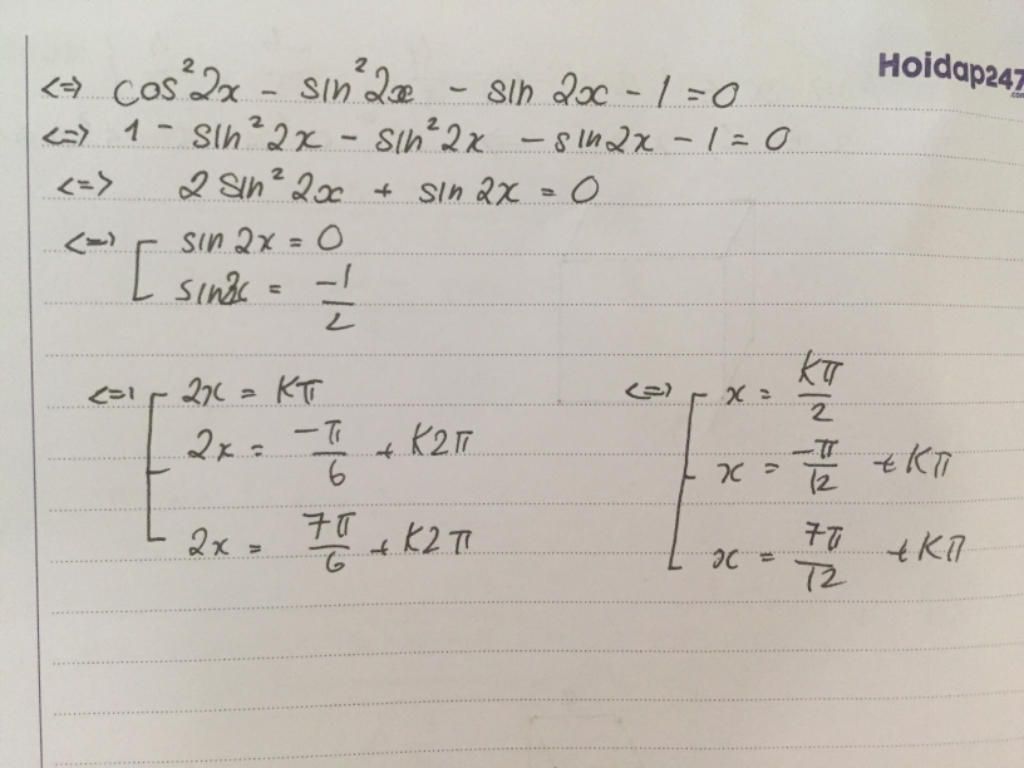 Hoidap247.com
<=> cos²2x - sin²2x - sin 2x - 1 = 0
<=> 1 - sin²2x - sin²2x - sin2x - 1 = 0
<=> 2 sin²2x + sin 2x = 0
<=> [ sin 2x = 0
sin2x = -1/2
<=> [ 2x = Kπ
2x = -π/6 + K2π
2x = 7π/6 + K2π
<=> [ x = Kπ/2
x = -π/12 + Kπ
x = 7π/12 + Kπ